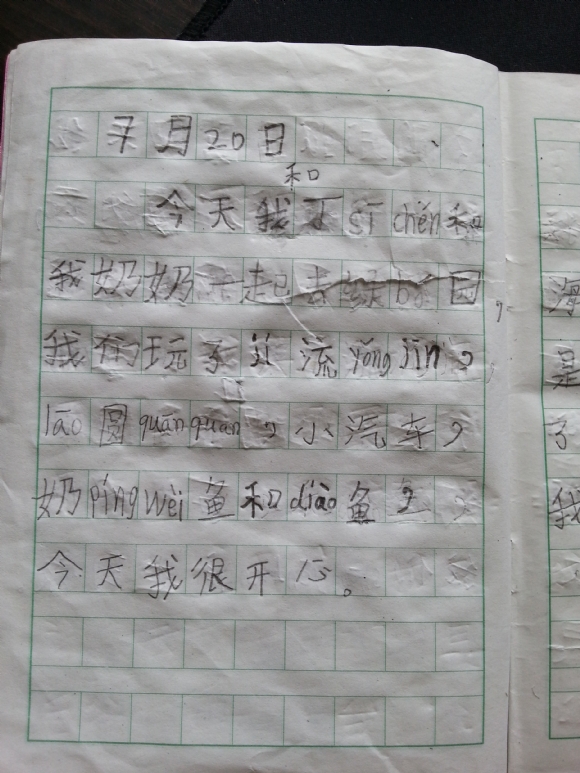 7月20日
和
今天我丁sī chén和
我奶奶一起去绿bó园，
我们玩了jī流yǒng jìn，
lāo圆quān quan，小汽车，
奶píng wèi鱼和diào鱼，
今天我很开心。
海
是
了
我